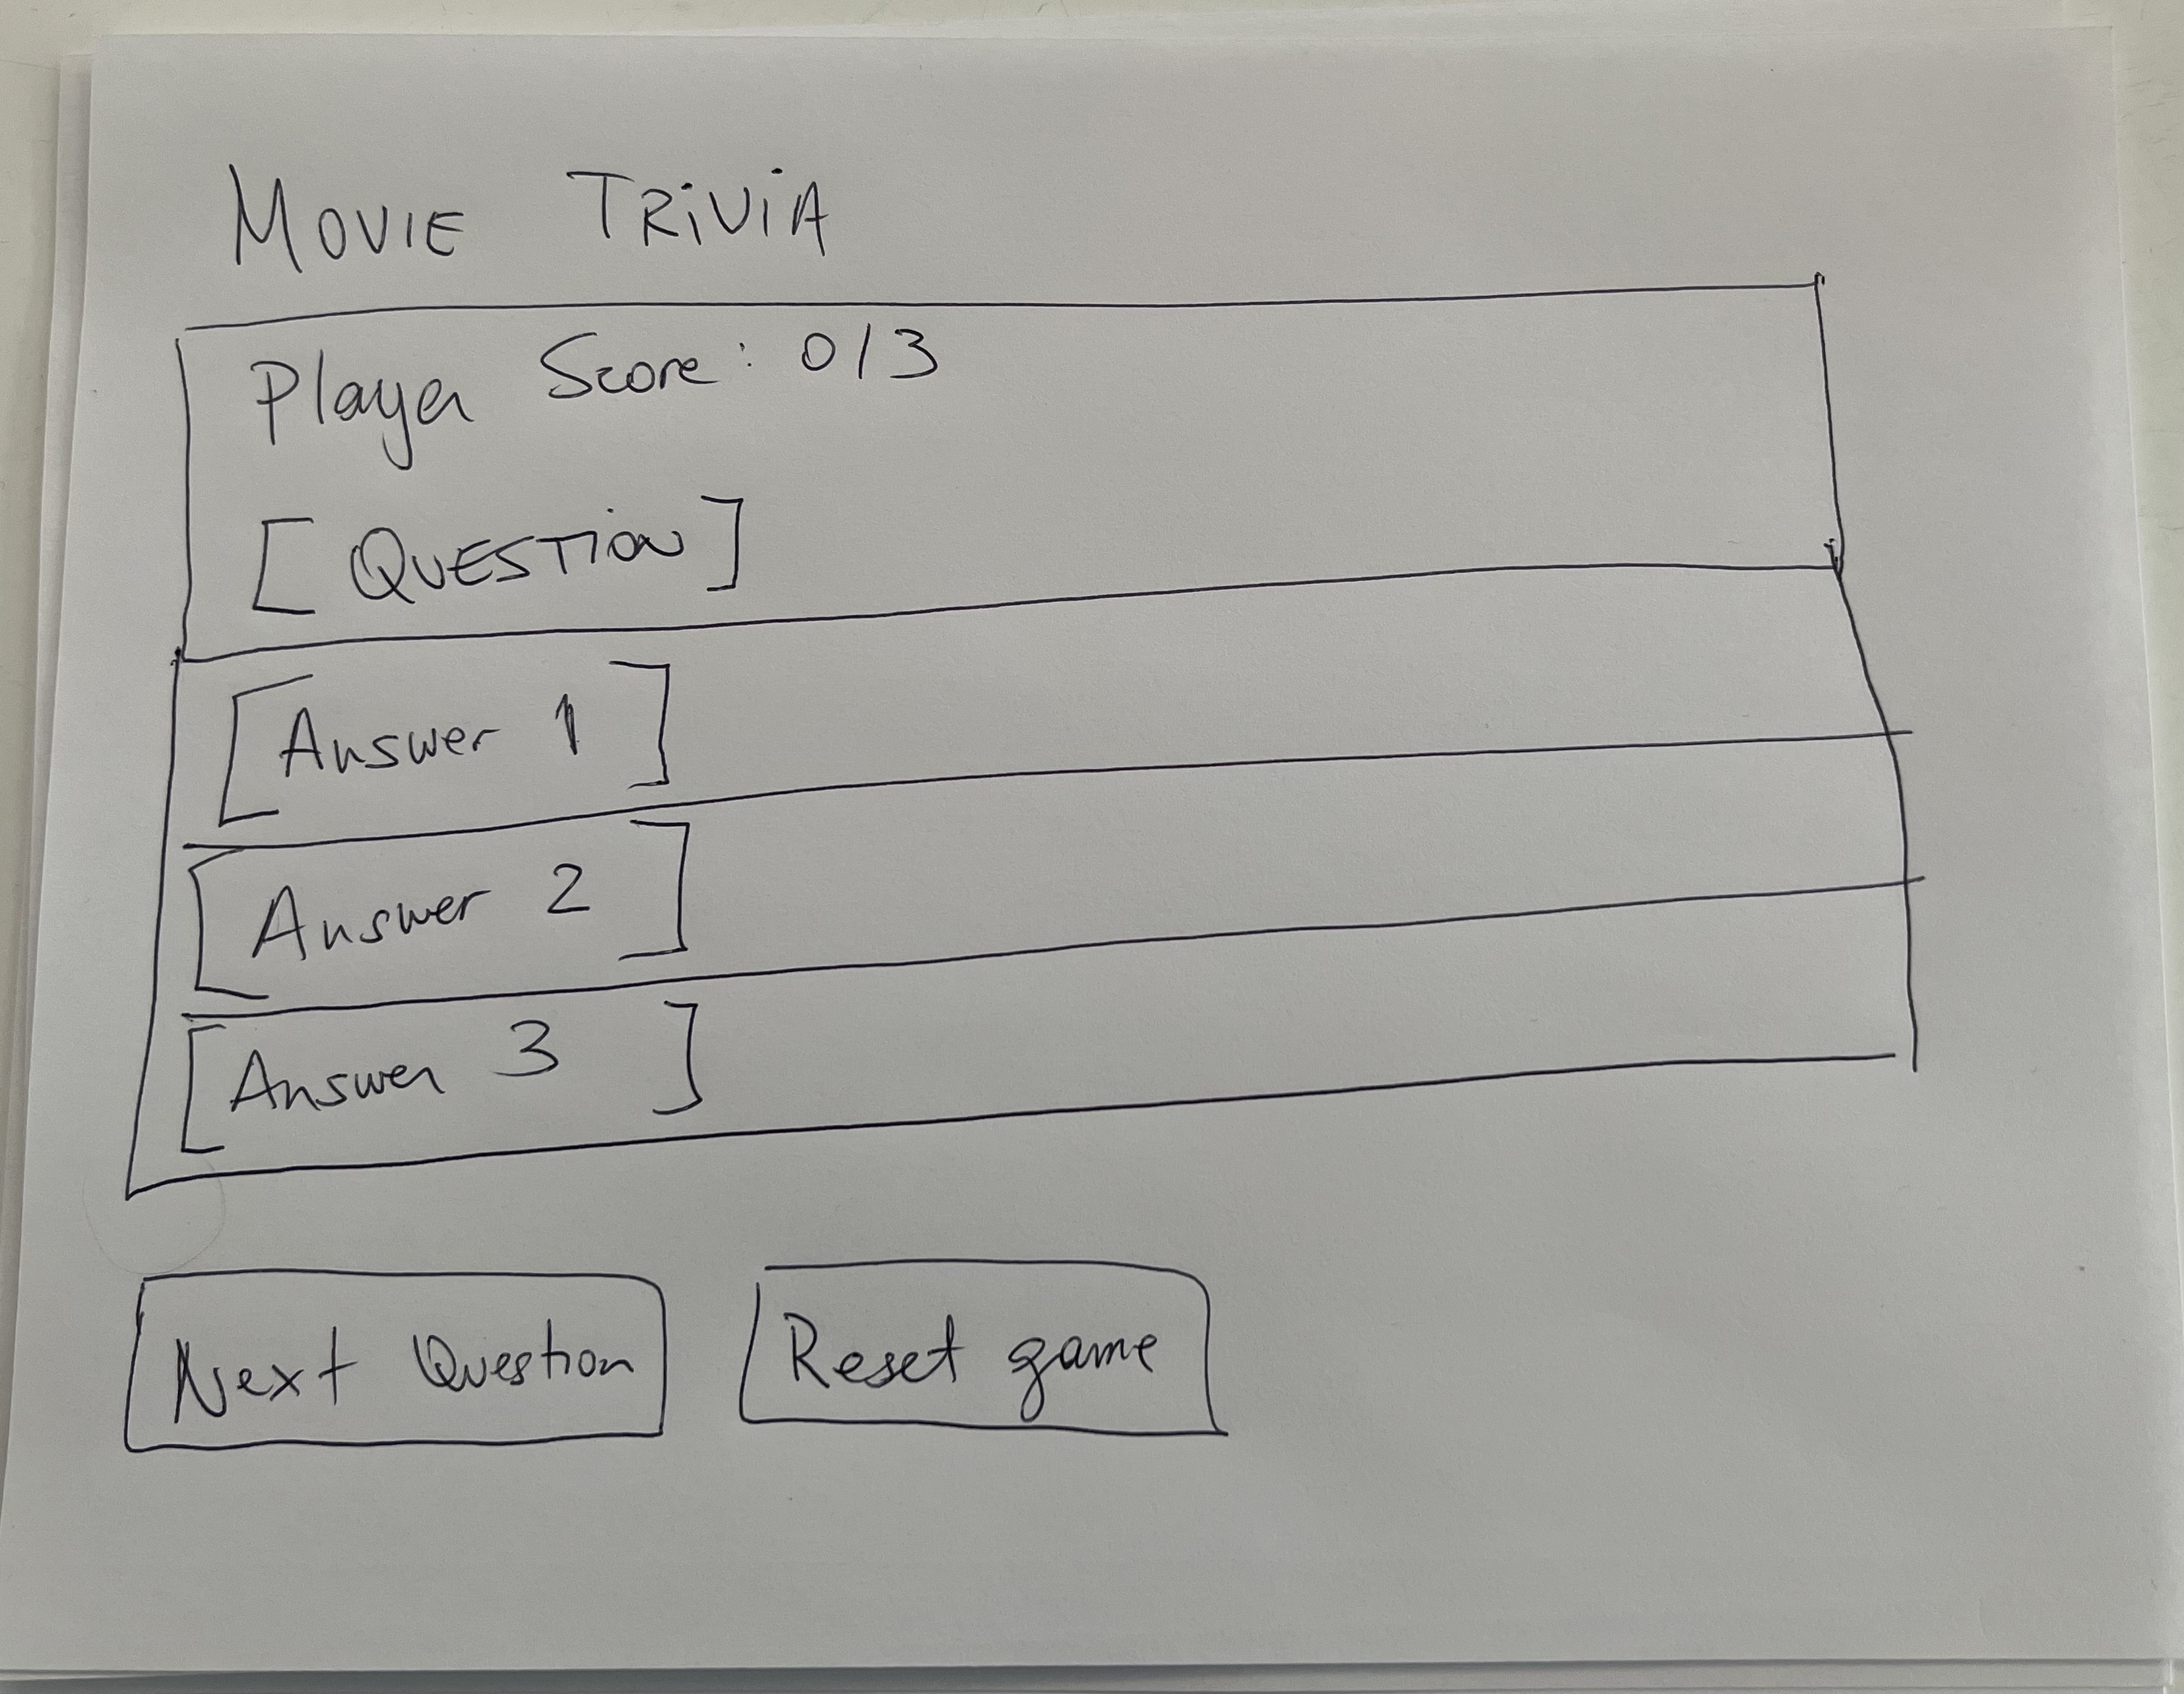 MOVIE TRiViA
Player Score: 0/3
[ QUESTiON ]
[ Answer 1 ]
[ Answer 2 ]
[ Answer 3 ]
Next Question
Reset game